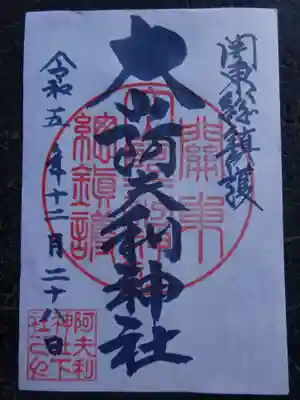 関東総鎮護
大山阿夫利神社
令和五年十二月二十八日
關東
總鎮護
阿夫利
神社下
社之印